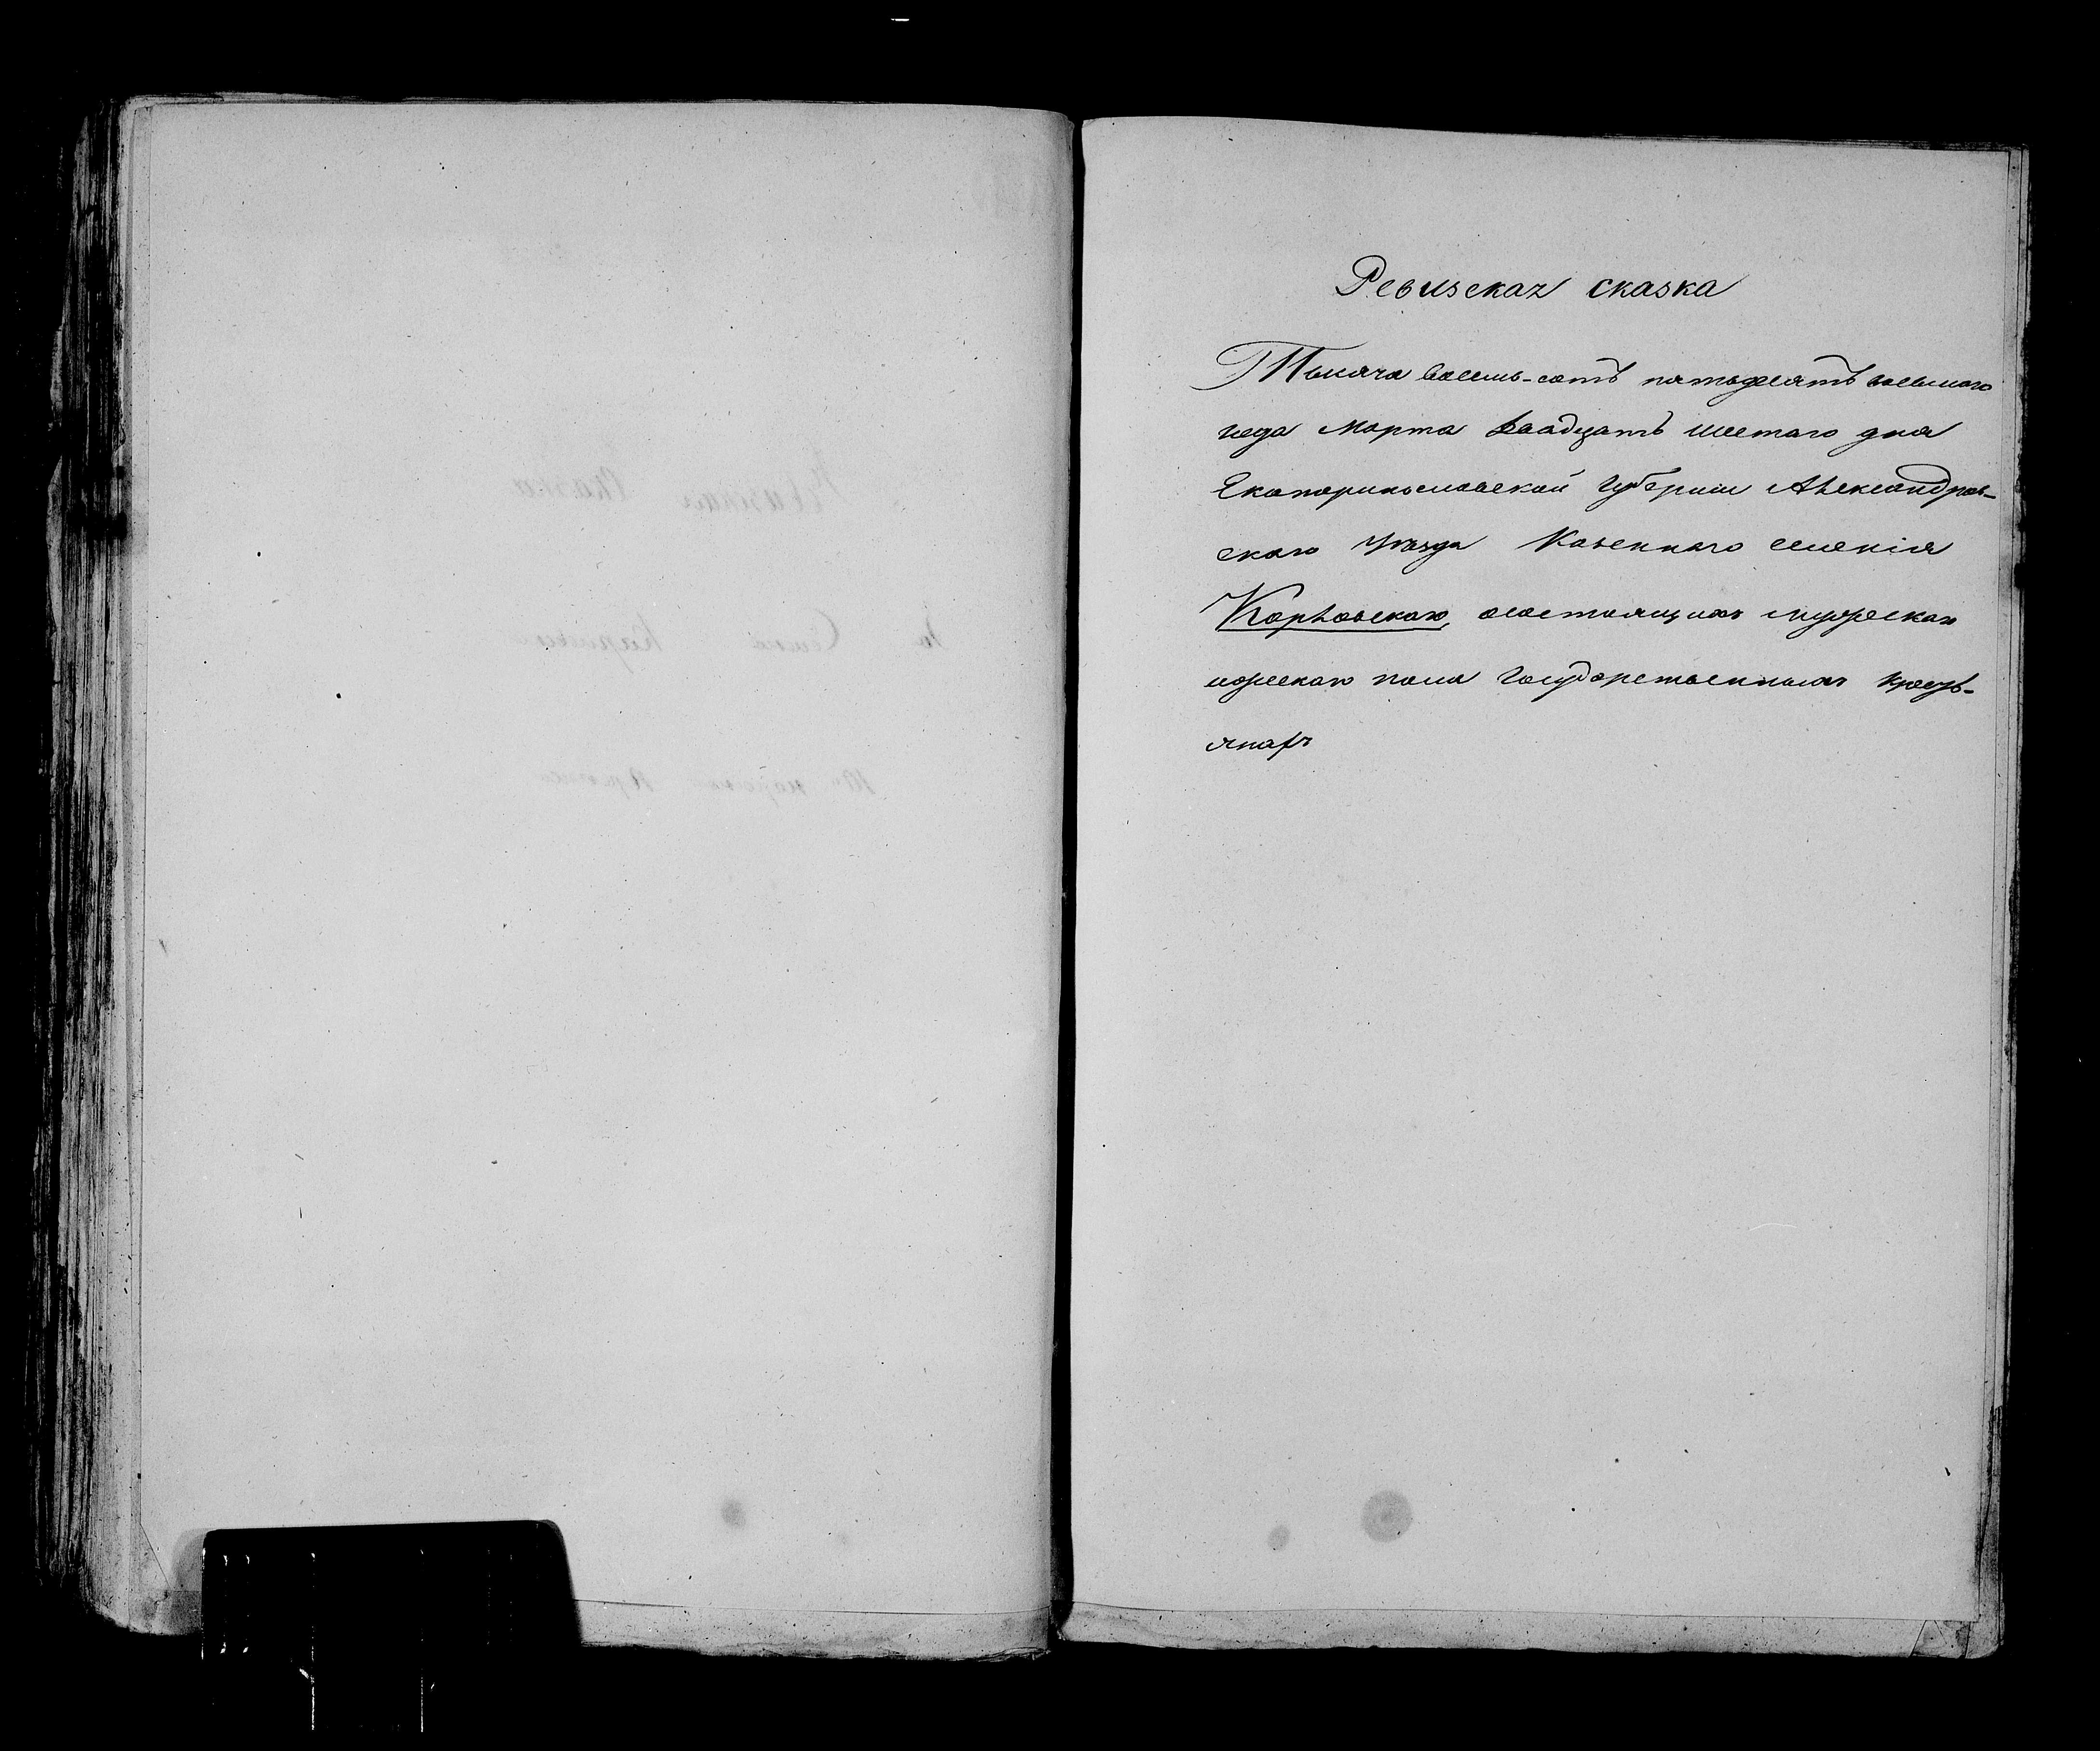 Ревизская сказка
Тысяча восемь-сотъ пятьдесятъ восьмаго
года Марта двадцать шестаго дня
Екатеринославской Губерніи Александров-
скаго Уѣзда Казеннаго селенія
Карловскаго, о состоящихъ мужескаго
женскаго пола Государственныхъ Кресть-
янахъ